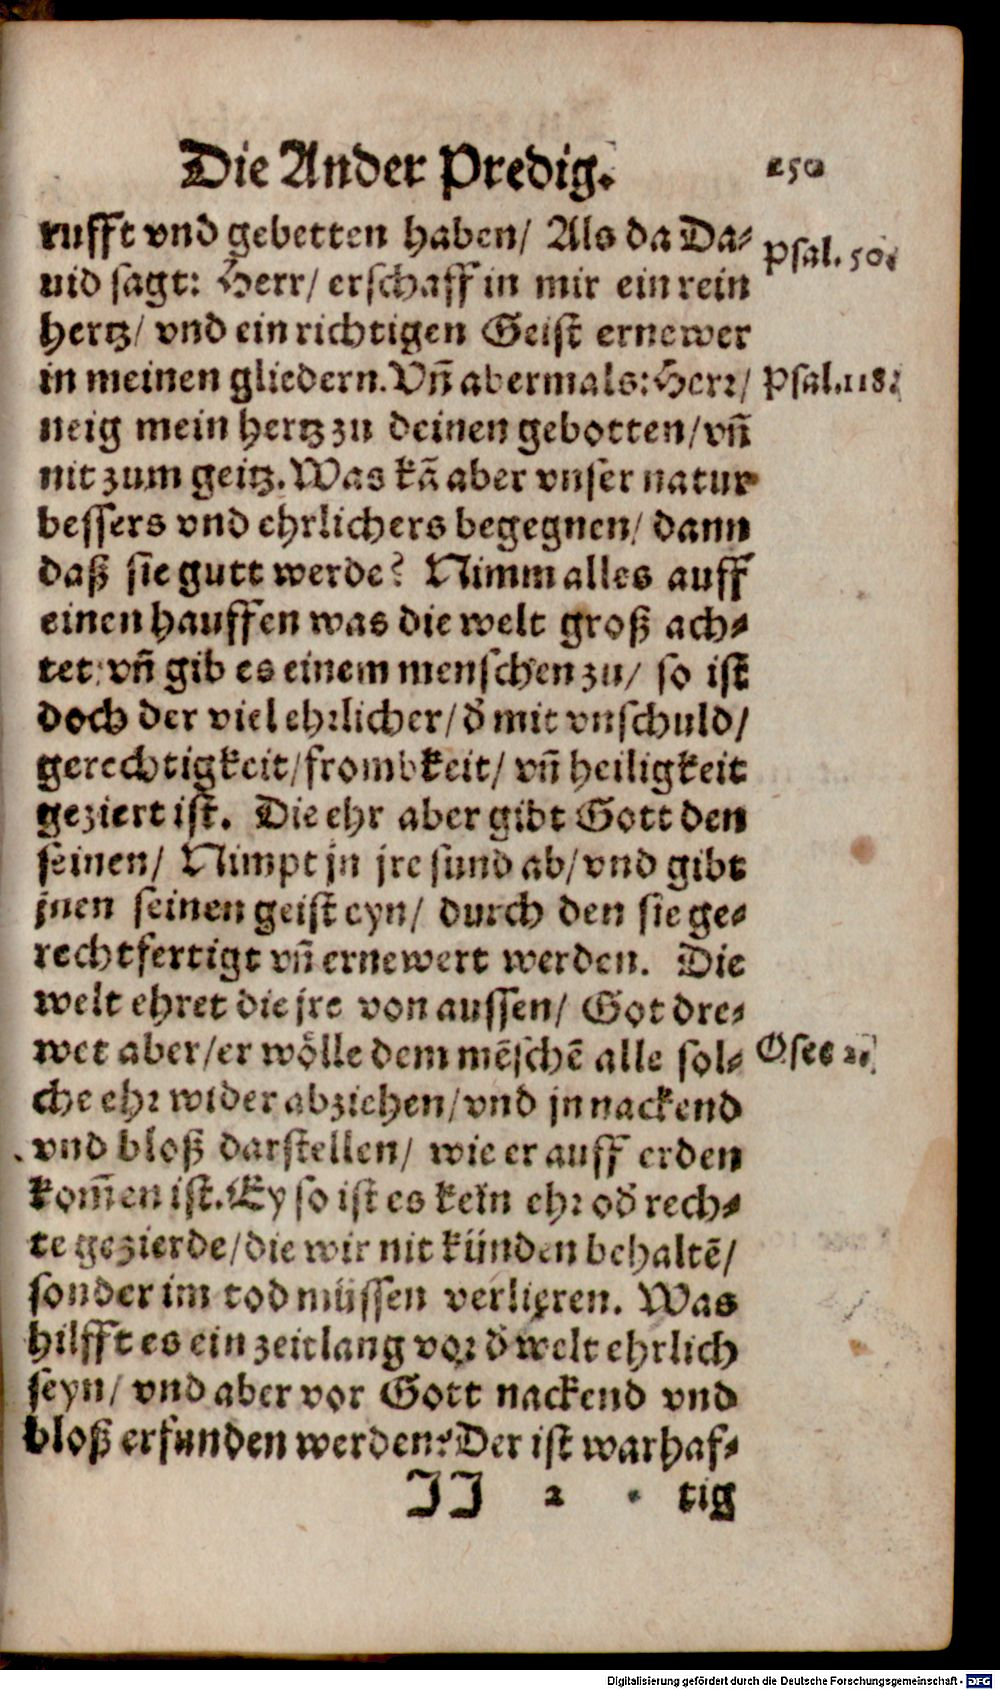 Die Ander Predig. 250
rufft vnd gebetten haben/ Als da Da⸗
uid sagt: Herr/ erschaff in mir ein rein
Psal. 50.
hertz/ vnd ein richtigen Geist ernewer
in meinen gliedern. Vñ abermals: Herr/
Psal. 118.
neig mein hertz zu deinen gebotten/ vñ
nit zum geitz. Was kã aber vnser natur
bessers vnd ehrlichers begegnen/ dann
daß sie gutt werde? Nimm alles auff
einen hauffen was die welt groß ach⸗
tet/ vñ gib es einem menschen zu/ so ist
doch der viel ehrlicher/ d̃ mit vnschuld/
gerechtigkeit/ frombkeit/ vñ heiligkeit
geziert ist. Die ehr aber gibt Gott den
seinen/ Nimpt jn jre sünd ab/ vnd gibt
jnen seinen geist eyn/ durch den sie ge⸗
rechtfertigt vñ ernewert werden. Die
welt ehret die jre von aussen/ Got dre⸗
wet aber/ er wölle dem mẽschẽ alle sol⸗
Osee 2.
che ehr wider abziehen/ vnd jn nackend
vnd bloß darstellen/ wie er auff erden
kom̃en ist. Ey so ist es kein ehr od̃ rech⸗
te gezierde/ die wir nit künden behaltẽ/
sonder im tod müssen verlieren. Was
hilfft es ein zeitlang vor d̃ welt ehrlich
seyn/ vnd aber vor Gott nackend vnd
bloß erfunden werden? Der ist warhaf⸗
JJ 2 tig
Digitalisierung gefördert durch die Deutsche Forschungsgemeinschaft - DFG